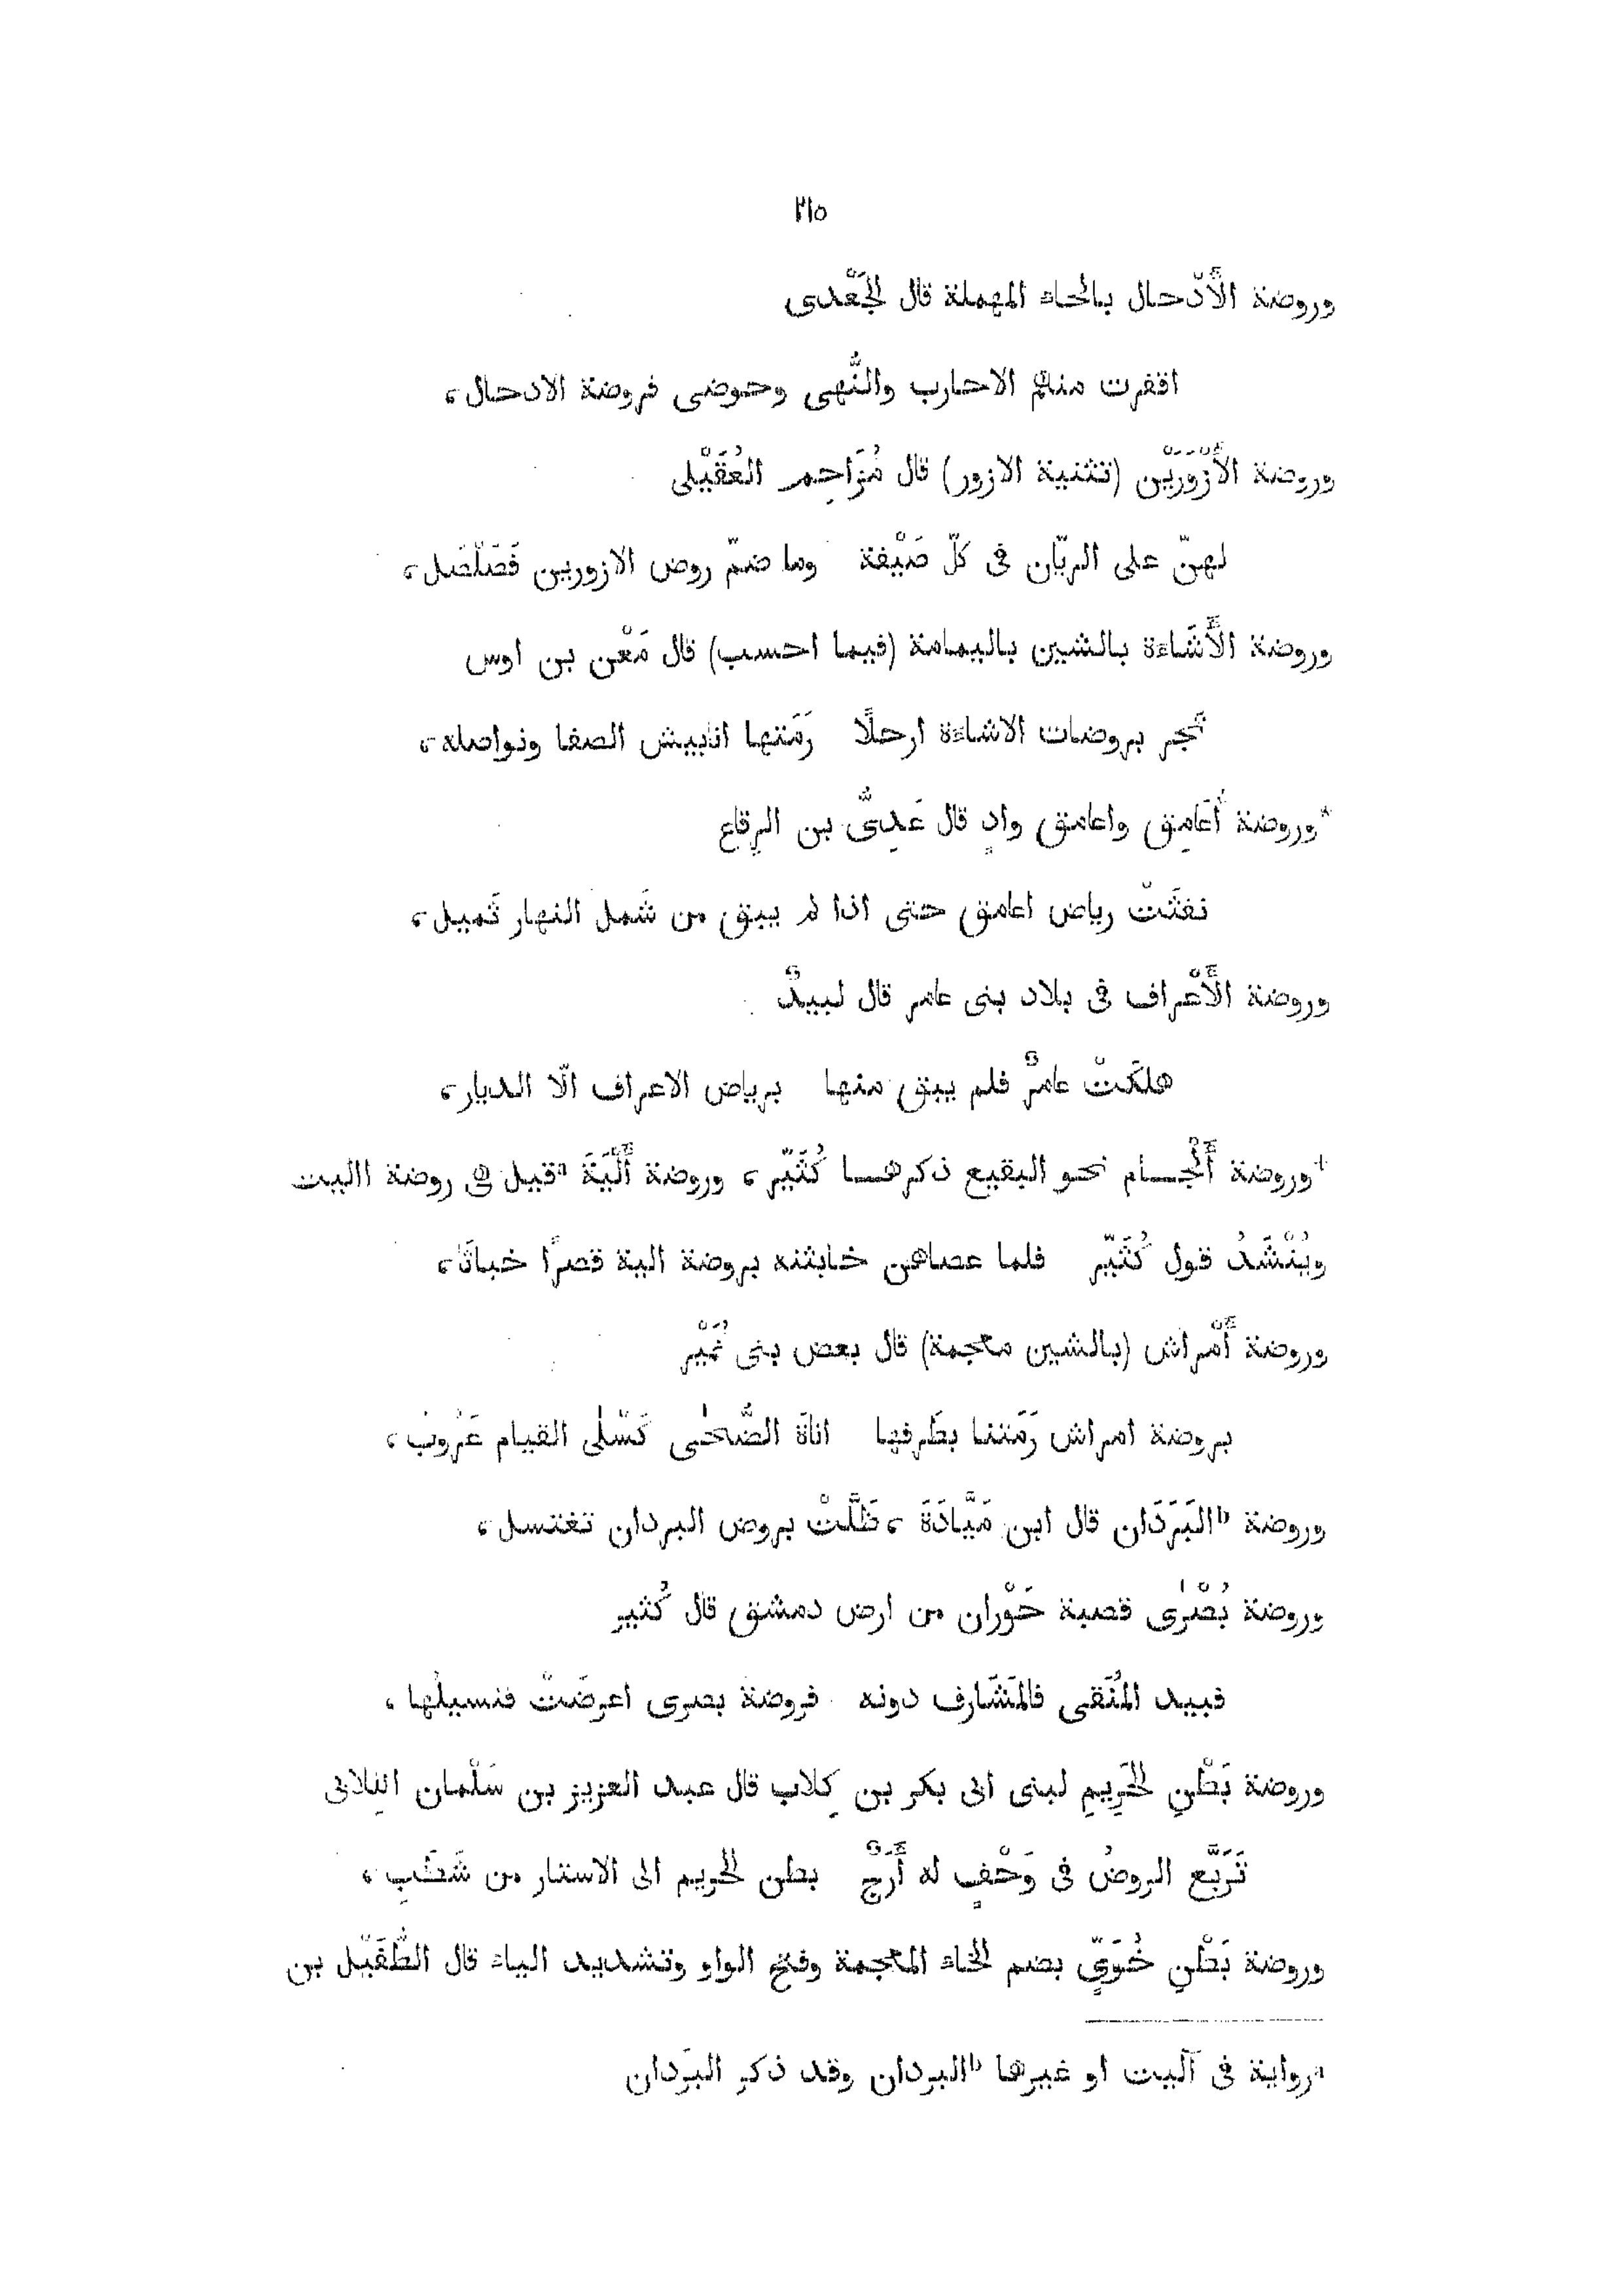 ٢١٥
وروضة الأَدْحال بالحاء المهملة قال الجَعْدى
اقفرت منهم الاحارب والنُّهى وحوضى فروضة الادحال،
وروضة الأَزْوَرَيْن (تثنية الازور) قال مُزَاحِم العُقَيْلى
لهنّ على الريّان فى كلّ صَيْفة وما ضمّ روض الازورين فَصَلْصَل،
وروضة الأَشَاءة بالشين باليمامة (فيما احسب) قال مَعْن بن اوس
تجر بروضات الاشاءة ارحلًا رَمَتها انابيش الصفا ونواصله،
*وروضة أُعَامِق واعامق وادٍ قال عَدِىُّ بن الرِقاع
نفثَتْ رياض اعامق حتى اذا لم يبق من شَمل النهار ثَميل،
وروضة الأَعْراف فى بلاد بنى عامر قال لبيدٌ
هلكَتْ عامرٌ فلم يبق منها برياض الاعراف الّا الديار،
+وروضة أَلْجـام نحو البقيع ذكرهـا كُثَيّر، وروضة أَلْيَةَ ªقيل فى روضة االيت
ويُنْشَدُ قول كُثَيّر فلما عصاهن خابثنه بروضة الية قصرًا خباثا،
وروضة أَمْراش (بالشين معجمة) قال بعض بنى نُمَيْر
بروضة امراش رَمَتنا بطَرفها اناة الضُّحٰى كَسْلٰى القيام عَرُوب،
وروضة ᵇالبَرَدَان قال ابن مَيَّادَةَ، ظَلَّتْ بروض البردان تغتسل،
وروضة بُصْرٰى قصبة حَوْران من ارض دمشق قال كُثير
فبيد المُنَقى فالمَشَارف دونه فروضة بصرى اعرضَتْ فنسيلُها،
وروضة بَطْنِ الخَرِيمِ لبنى ابى بكر بن كِلاب قال عبد العزيز بن سَلْمان الكِلابى
تَرَبَّع الروضُ فى وَحْفٍ له أَرَجٌ بطن الخريم الى الاستار من شَطَبِ،
وروضة بَطْنِ خُوَيّ بضم الخاء المعجمة وفتح الواو وتشديد الياء قال الطُّفَيْل بن
ªرواية فى آليت او غيرها ᵇالبردان وقد ذكر البَردان